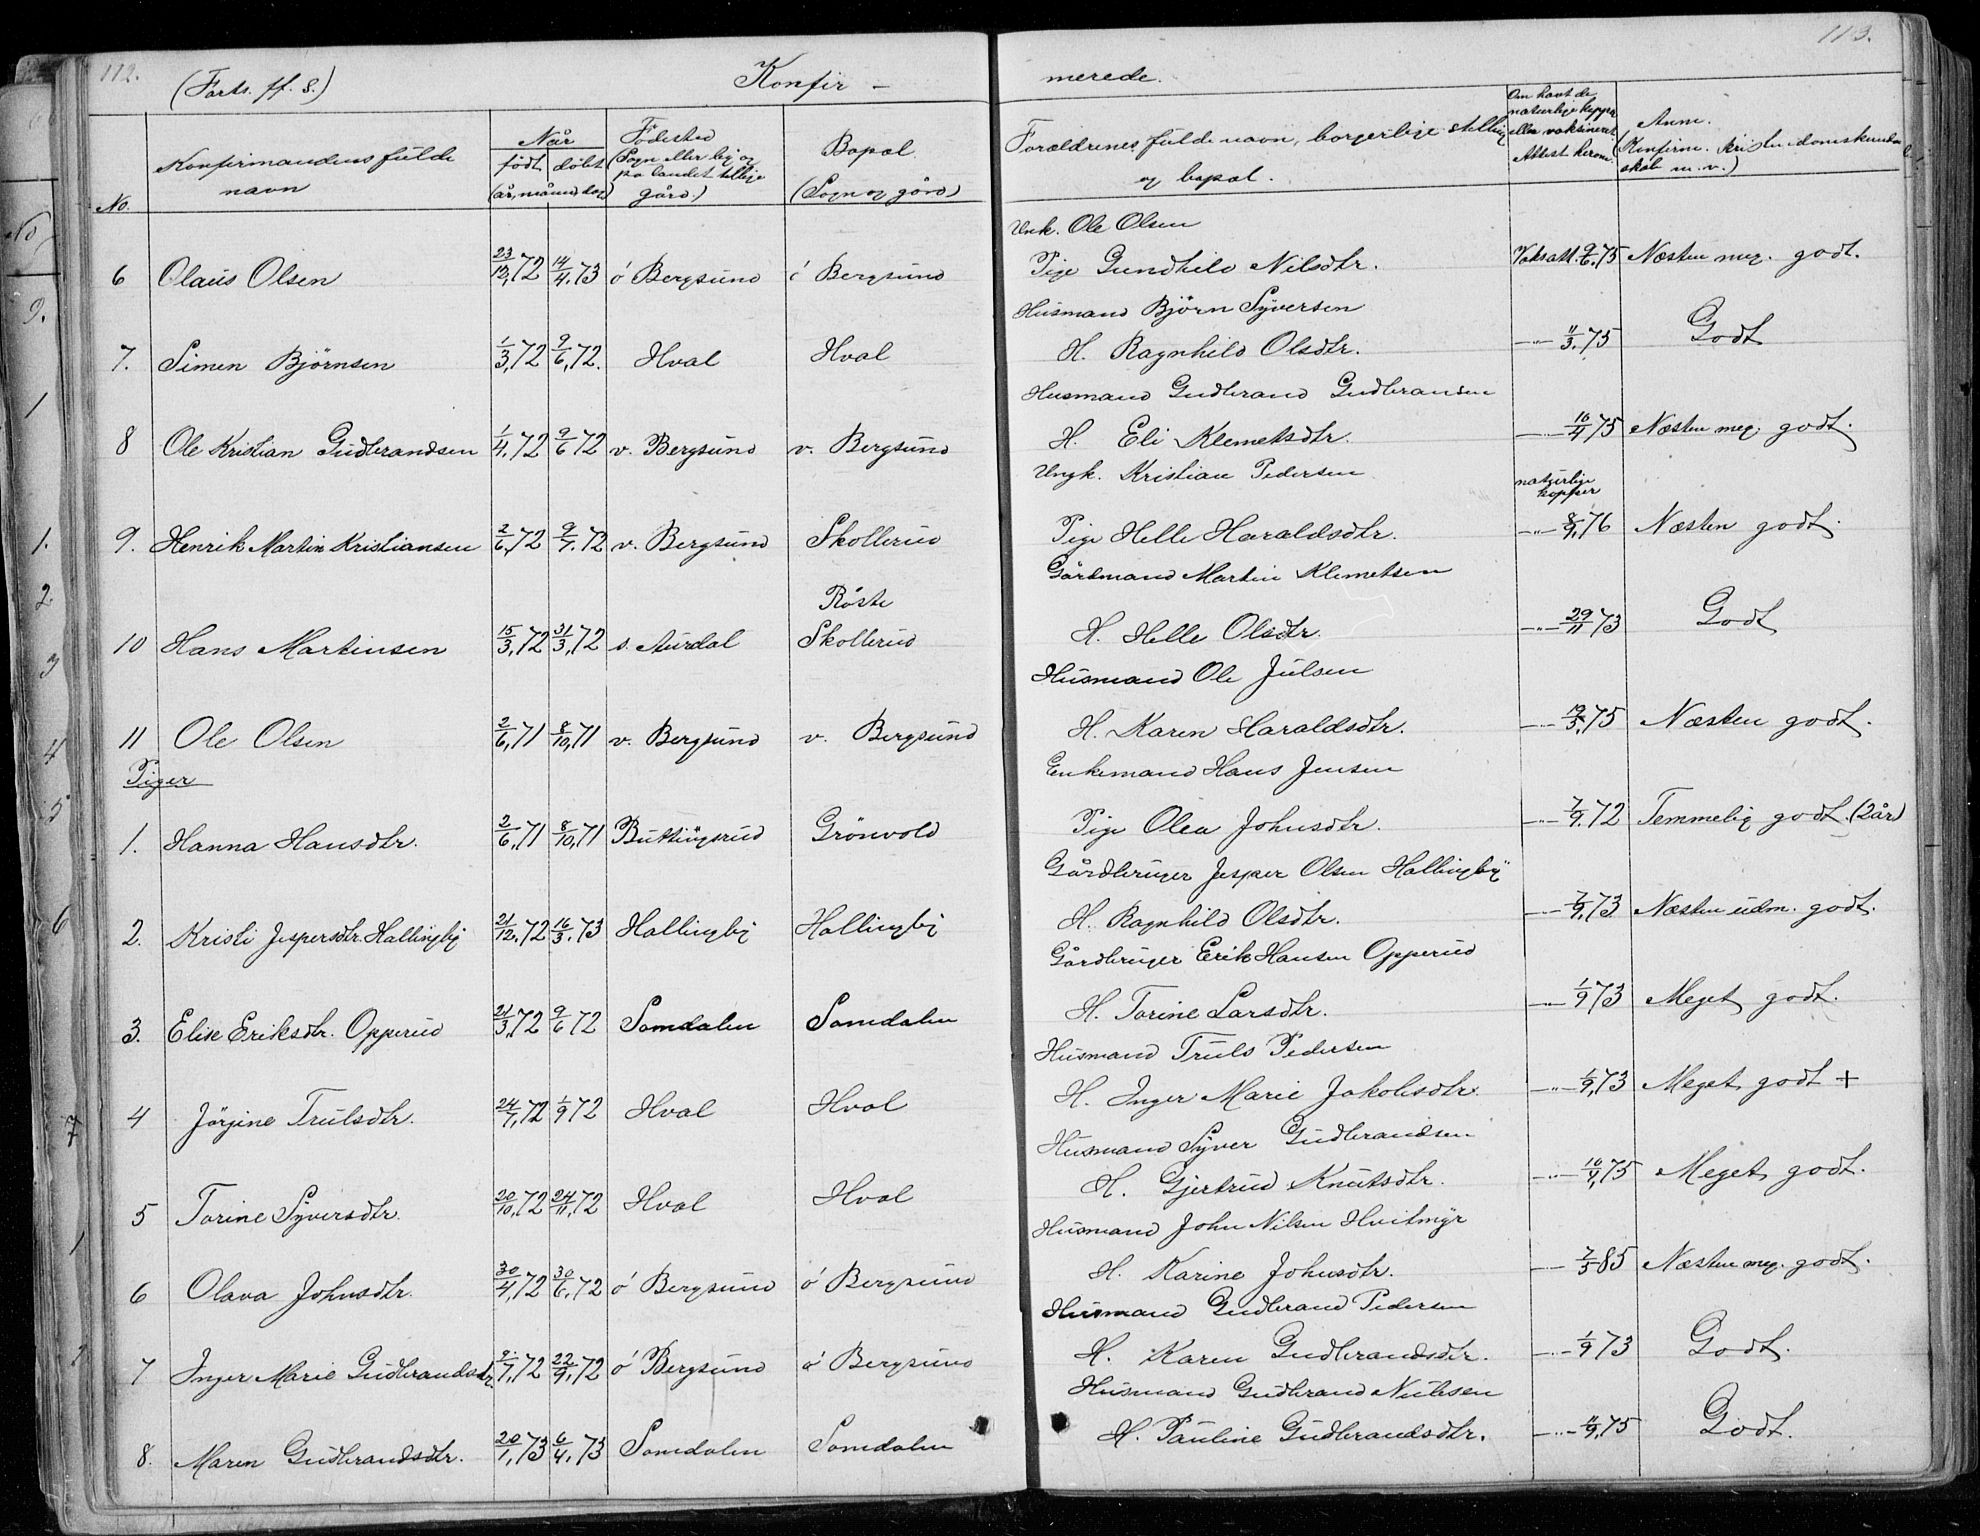 112.
(Forts. ff. S.)
Konfir -
merede.
113.
No.
Konfirmandens fulde
navn
Når
født
døbt
(år, måned, dag)
Fødested
(Sogn eller by og
på landet tillige
gård.)
Bopæl
(Sogn og gård)
Forældrenes fulde navn, borgerlige stilling
og bopæl.
Om havt de
naturlige kopper
eller vaksineret.
Attest herom
Anm.
(Konfirm. kristendomskund-
skab m. v.)
Unk. Ole Olsen
6 Olaus Olsen 23/12,72 14/4,73 ö Bergsund ö Bergsund Pige Gundhild Nilsdtr. Vaksatt. 9/6.75 Næsten meg. godt.
Husmand Björn Syversen
7. Simen Björnsen 1/3,72 9/6,72. Hval Hval H. Ragnhild Olsdtr. —"— 11/3.75 Godt
Husmand Gudbrand Gudbransen
8 Ole Kristian Gudbrandsen 1/4,72 9/6 72 v. Bergsund v. Bergsund H. Eli Klemetsdtr. —"— 10/4 75 Næsten meg. godt.
Ungk. Kristian Pedersen
naturlige
kopper
9. Henrik Martin Kristiansen 2/6,72 9/7.72 v. Bergsund Skollerud Pige Helle Haraldsdtr. —"— 8/9,76 Næsten godt.
Gårdmand Martin Klemetsen
Röste
10 Hans Martinsen 15/3,72 31/3,72 s. Aurdal Skollerud H. Helle Olsdtr. —"— 29/11 73 Godt
Husmand Ole Julsen
11 Ole Olsen 2/6,71 8/10,71 v. Bergsund v. Bergsund H. Karen Haraldsdtr. —"— 12/5,75 Næsten godt.
Piger
Enkemand Hans Jensen
1. Hanna Hansdtr. 2/6,71 8/10,71 Buttingsrud Grönvold Pige Olea Johnsdtr. —"— 7/9.72 Temmelig godt. (2 år)
Gårdbruger Jesper Olsen Hallingby
2. Kristi Jespersdtr. Hallingby 21/12,72 16/3.73 Hallingby Hallingby H. Ragnhild Olsdtr. —"— 7/9,73 Næsten udm. godt.
Gårdbruger Erik Hansen Opperud
3. Elise Eriksdtr. Opperud 21/3,72 9/6 72 Somdalen Somdalen H. Torine Larsdtr. —"— 1/9 73 Meget godt.
Husmand Truls Pedersen
4 Jörgine Trulsdtr. 24/7,72 1/9 72 Hval Hval H. Inger Marie Jakobsdtr. —"— 1/9,73 Meget godt +
Husmand Syver Gudbrandsen
5 Torine Syversdtr. 20/10,72 24/11,72 Hval Hval H. Gjertrud Knutsdtr. —"— 10/4,75 Meget godt.
Husmand John Nilsen Hvitmyr
6 Olava Johnsdtr. 30/4,72 30/6,72 ö Bergsund ö Bergsund H. Karine Johnsdtr. —"— 7/5 85 Næsten meg. godt.
Husmand Gudbrand Pedersen
7 Inger Marie Gudbrandsdtr. 2/7,72 22/9,72 ö Bergsund ö Bergsund H. Karen Gudbrandsdtr. —"— 1/9 73 Godt.
Husmand Gudbrand Nilsen
8. Maren Gudbrandsdtr. 20/1,73 6/4,73 Somdalen Somdalen H. Pauline Gudbrandsdtr. —"— 75 Godt.